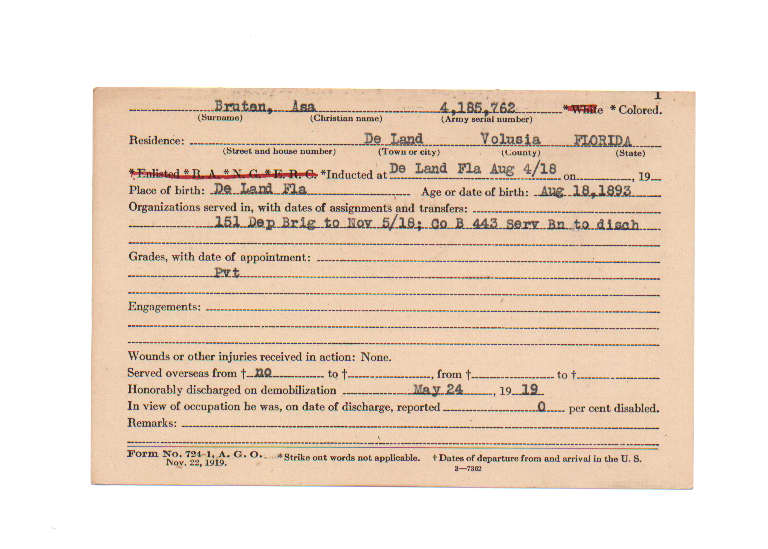 1
Bruten, Asa 4,185,762 *White * Colored.
(Surname) (Christian name) (Army serial number)
Residence: De Land Volusia FLORIDA
(Street and house number) (Town or city) (County) (State)
*Enlisted *R. A. *N. G. *E. R. C. *Inducted at De Land Fla Aug 4/18 on , 19
Place of birth: De Land Fla Age or date of birth: Aug 18,1893
Organizations served in, with dates of assignments and transfers:
151 Dep Brig to Nov 5/18; Co B 443 Serv Bn to disch
Grades, with date of appointment:
Pvt
Engagements:
Wounds or other injuries received in action: None.
Served overseas from † no to †, from † to †
Honorably discharged on demobilization May 24, 19 19
In view of occupation he was, on date of discharge, reported 0 per cent disabled.
Remarks:
Form No. 724-1, A. G. O. *Strike out words not applicable. † Dates of departure from and arrival in the U. S.
Nov. 22, 1919. 3—7362